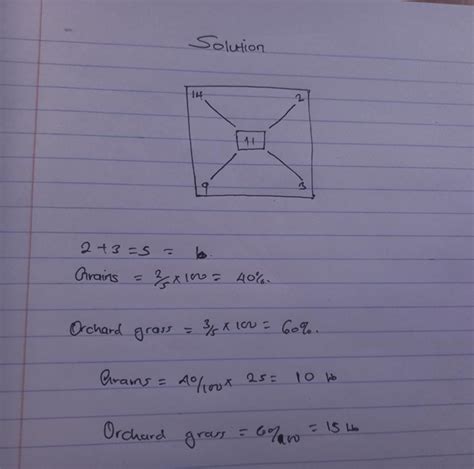 Solution
14 2
11
9 3
2 + 3 = 5 = lb
Grains = 2/5 × 100 = 40%.
Orchard grass = 3/5 × 100 = 60%.
Grains = 40/100 × 25 = 10 lb
Orchard grass = 60/100 = 15 lb